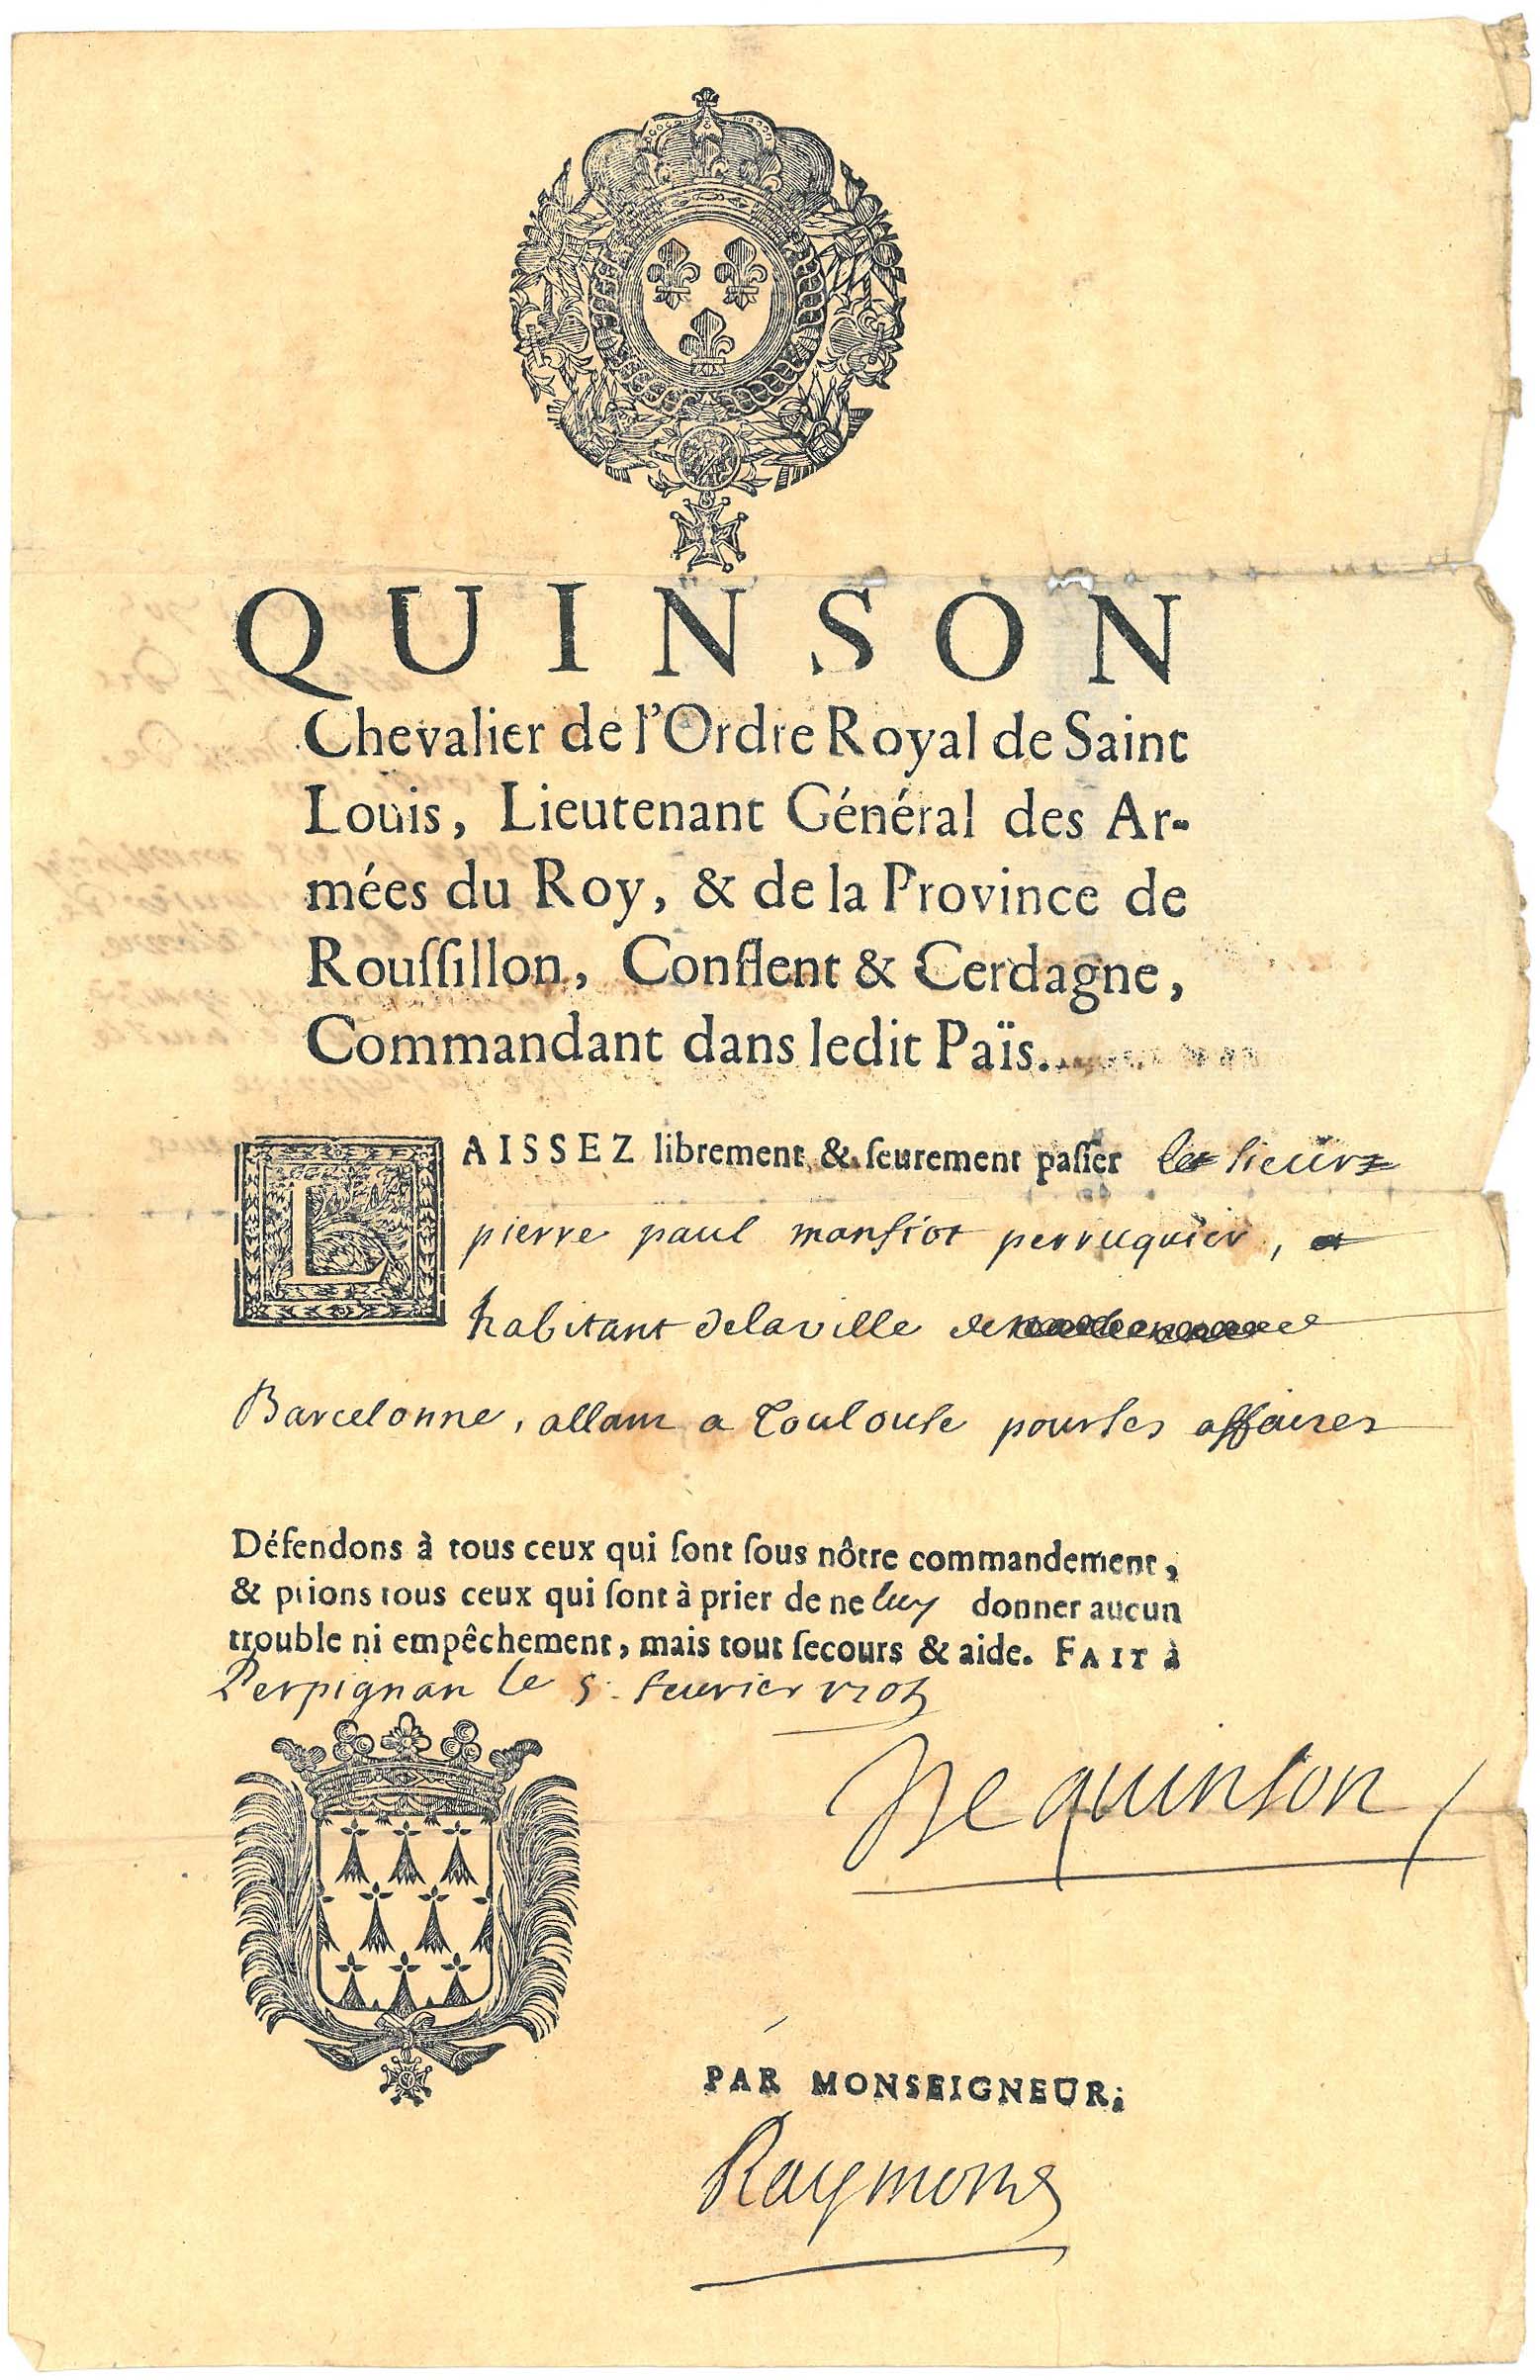 QUINSON
Chevalier de l'Ordre Royal de Saint
Loüis, Lieutenant Général des Ar-
mées du Roy, & de la Province de
Rouſſillon, Conflent & Cerdagne,
Commandant dans ledit Païs.
LAISSEZ librement & ſeurement paſſer le ſieur
pierre paul manſiot perruquier,
habitant delaville de
Barcelonne, allant a Toulouſe pour ſes affaires
Défendons à tous ceux qui ſont ſous nôtre commandement,
& prions tous ceux qui ſont à prier de ne luy donner aucun
trouble ni empêchement, mais tout ſecours & aide. FAIT à
Perpignan le 5. feurier
De quinſon
PAR MONSEIGNEUR;
Raymond